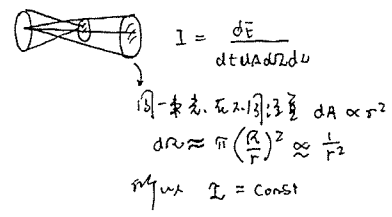 I = dE / dt dA dΩ dν
同一束光，在不同位置 dA ∝ r²
dΩ ≈ π (R/r)² ∝ 1/r²
所以 I = const